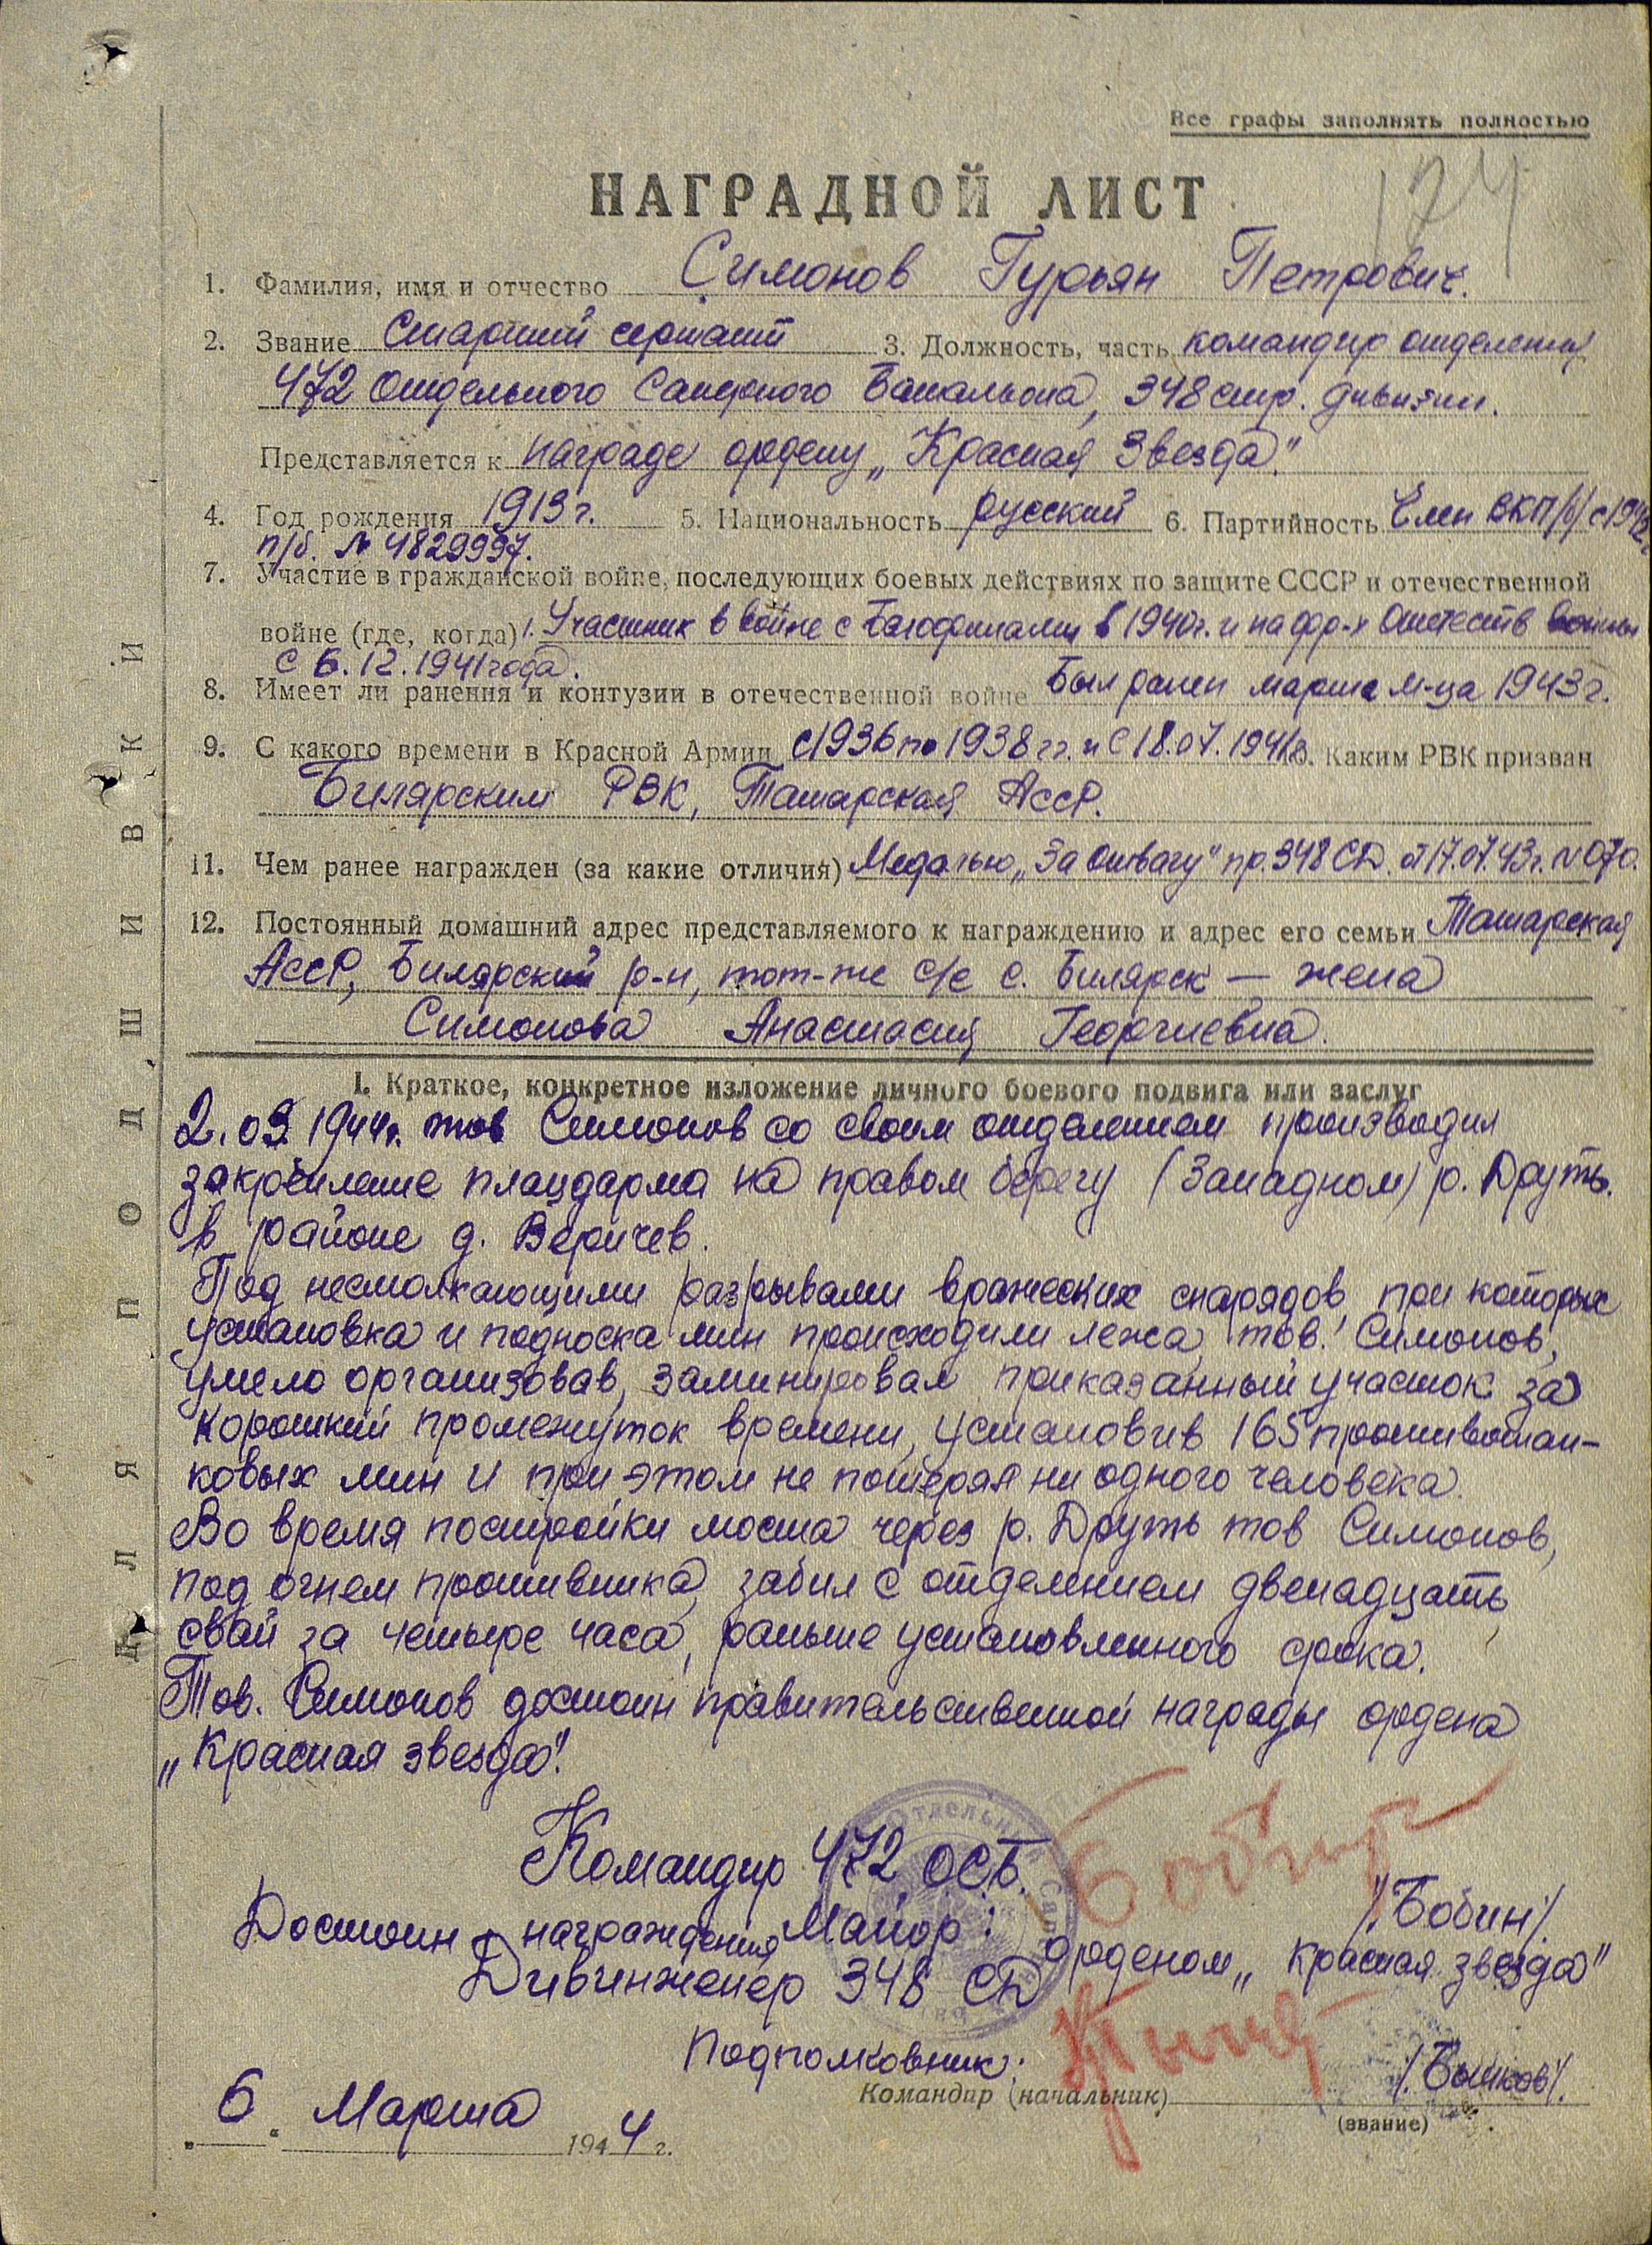 Все графы заполнять полностью
174
НАГРАДНОЙ ЛИСТ
1. Фамилия, имя и отчество Симонов Гурьян Петрович.
2. Звание Старший сержант 3. Должность, часть командир отделения
472 Отдельного Саперного Батальона, 348 стр. дивизии.
Представляется к награде ордену „Красная Звезда"
4. Год рождения 1913 г. 5. Национальность русский 6. Партийность Член ВКП/б/ с 1942
п/б. № 4829997.
7. Участие в гражданской войне, последующих боевых действиях по защите СССР и отечественной
войне (где, когда) Участник в войне с Белофинами в 1940г. и на фр-х Отечеств войны
с 6.12.1941 года.
8. Имеет ли ранения и контузии в отечественной войне Был ранен марте м-ца 1943 г.
9. С какого времени в Красной Армии с 1936 по 1938 гг. и с 18.07.1941 Каким РВК призван
Билярским РВК, Татарская АССР.
11. Чем ранее награжден (за какие отличия) Медалью „За отвагу" пр. 348 СД. от 17.07.43г. N 070.
12. Постоянный домашний адрес представляемого к награждению и адрес его семьи Татарская
АССР, Билярский р-н, тот-же с/с с. Билярск — жена
Симонова Анастасия Георгиевна.
I. Краткое, конкретное изложение личного боевого подвига или заслуг
2.03.1944г. тов Симонов со своим отделением производил
закрепление плацдарма на правом берегу (Западном) р. Друть.
в районе д. Веричев.
Под несмолкающими разрывами вражеских снарядов, при которых
установка и подноска мин происходили лежа, тов. Симонов,
умело организовав, заминировал приказанный участок за
короткий промежуток времени, установив 165 противотан-
ковых мин и при этом не потеряя ни одного человека.
Во время постройки моста через р. Друть тов Симонов,
под огнем противника, забил с отделением двенадцать
свай за четыре часа, раньше установленного срока.
Тов. Симонов достоин правительственной награды ордена
„Красная звезда".
Командир 472 ОСБ.
Майор: Бобин /.Бобин/.
Достоин награждения орденом „Красная звезда"
Дивинженер 348 СД
Подполковник: /.Бычков/.
Командир (начальник)
(звание)
„ 6 " Марта 1944 г.
ДЛЯ ПОДШИВКИ